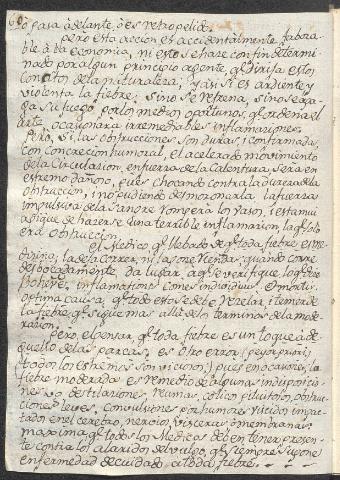 60
o pasa adelante, ò es retropelido.
pero esta accion es accidentalmente favora-
ble à la economia, ni esto se hace con fin determi-
nado por algun principio agente, q.e dirija estos
conatos de la naturaleza, y asi si es ardiente y
violenta la fiebre; sino se refrena, sino se apa-
ga su fuego por los medios oportunos, q.e ordena el
arte, ocasionara irremediables inflamaciones.
Pero, si las obstrucciones son duras, i confirmadas,
con concrecion humoral, el acelerado movimiento
de la circulacion, en fuerza de la Calentura, sera en
estremo dañoso, pues chocando contra la dureza de la
obstruccion, i no pudiendo desmoronarla, la fuerza
impulsiva de la sangre rompera los vasos, i esta mui
a pique de hacerse una terrible inflamacion, la q.e solo
era obstruccion.
el Medico q.e llebado de q.e toda fiebre es me-
dicina, la deja correr, ni la sone riendas, quando corre
desbocadamente, da lugar, a q.e se verifique lo q.e dice
Boherve, inflamations comes individuus et mortis
optima causa, q.e todo esto se debe rezelar, i temer de
la fiebre, q.e sigue mas allà de los terminos de la mode-
racion.
Pero, el pensar, q.e toda fiebre es un toque à de-
guello de las parcas, es otro error (y peor, pues i
todos los estremos son viciosos) pues en ocasiones, la
fiebre moderada es remedio de algunas indisposicio-
nes v.g destilaciones, reumas, colico pituitoso, obstruc-
ciones leves, convulsiones por humores viscidos impac-
tados en el cerebro, nervios, visceras ò membranas;
maxima q.e todos los Medicos deben tener presen-
te contra los alaridos del vulgo, q.e siempre supone
enfermedad de cuidado, a toda fiebre.